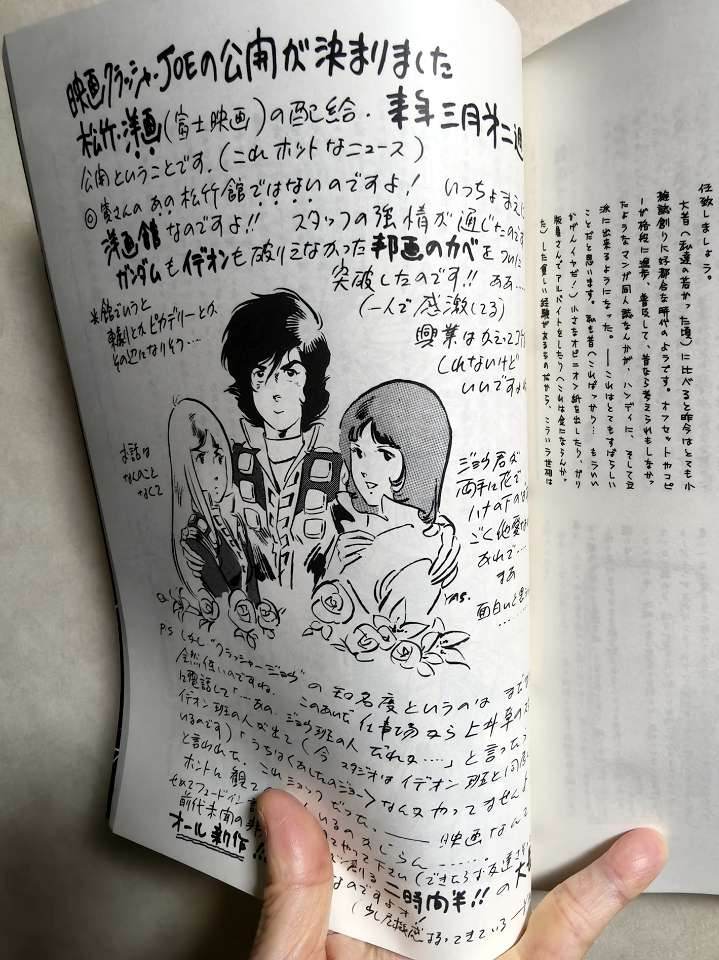 映画クラッシャーJOEの公開が決まりました
松竹・洋画(富士映画)の配給・来年三月第二週
公開ということです。(これホットなニュース)
◎寅さんのあの松竹館ではないのですよ! いっちょまえに
洋画館なのですよ!! スタッフの強情が通じたのです
ガンダムもイデオンも破りえなかった邦画のカベをついに
突破したのです!! ああ…
(一人で感激してる)
※館でいうと
東劇とか、ピカデリーとか、
その辺になりそう…
興業は
しれないけど
いいですよね
お話は
なんのこと
なくて
ジョウ君が
両手に花で
ハナの下の
ごく他愛な
あれで…
まあ
面白いと思
YAS.
PS しかし“クラッシャージョウ”の知名度というのは まだ
全然低いのですね。このあいだ仕事場なら上井草の
に電話して「…あの、ジョウ班の人だれか…」と言ったら
イデオン班の人が出て(今スタジオはイデオン班と同居
いるのです)「うちは〈あしたのジョー〉なんてやってませんよ
と言われた。これショックだった。── 映画なんて
ホントに観て
いるのかしらん……
せめてフェードイン
やって下さい(できたらお友達
前代未聞の
で創る二時間半!!の大
オール新作!!
なのですよォ!
(少し圧縮感
してきている
任致しましょう。
大昔(私達の若かった頃)に比べると昨今はとても小
雑誌創りに好都合な時代のようです。オフセットやコピ
ーが格段に進歩、普及して、昔なら考えられもしなか
ったようなマンガ同人誌なんかが、ハンディに、そして立
派に出来るようになった。──これはとてもすばらしい
ことだと思います。私も昔(こればっかり…もういい
かげんイヤだ!)小さなオピニオン紙を出したり、ガリ
版屋さんでアルバイトをしたり(これは金にならんか
た)した貧しい経験があるものだから、こういう世相は